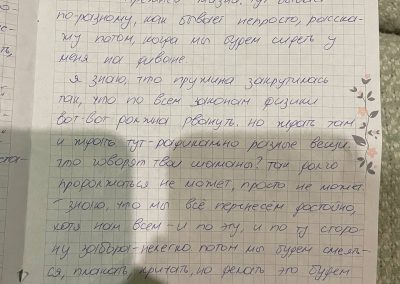 по-разному, как бывает непросто, расска-
жу потом, когда мы будем сидеть у
меня на диване.
Я знаю, что пружина закрутилась
так, что по всем законам физики
вот-вот должна рвануть. Но ждать там
и ждать тут - радикально разные вещи.
Что говорят твои шаманы? Так долго
продолжаться не может, просто не может
Знаю, что мы всё перенесём достойно,
хотя нам всем - и по эту, и по ту сторо-
ну забора - нелегко. Потом мы будем смеять-
ся, плакать, кричать, но делать это будем